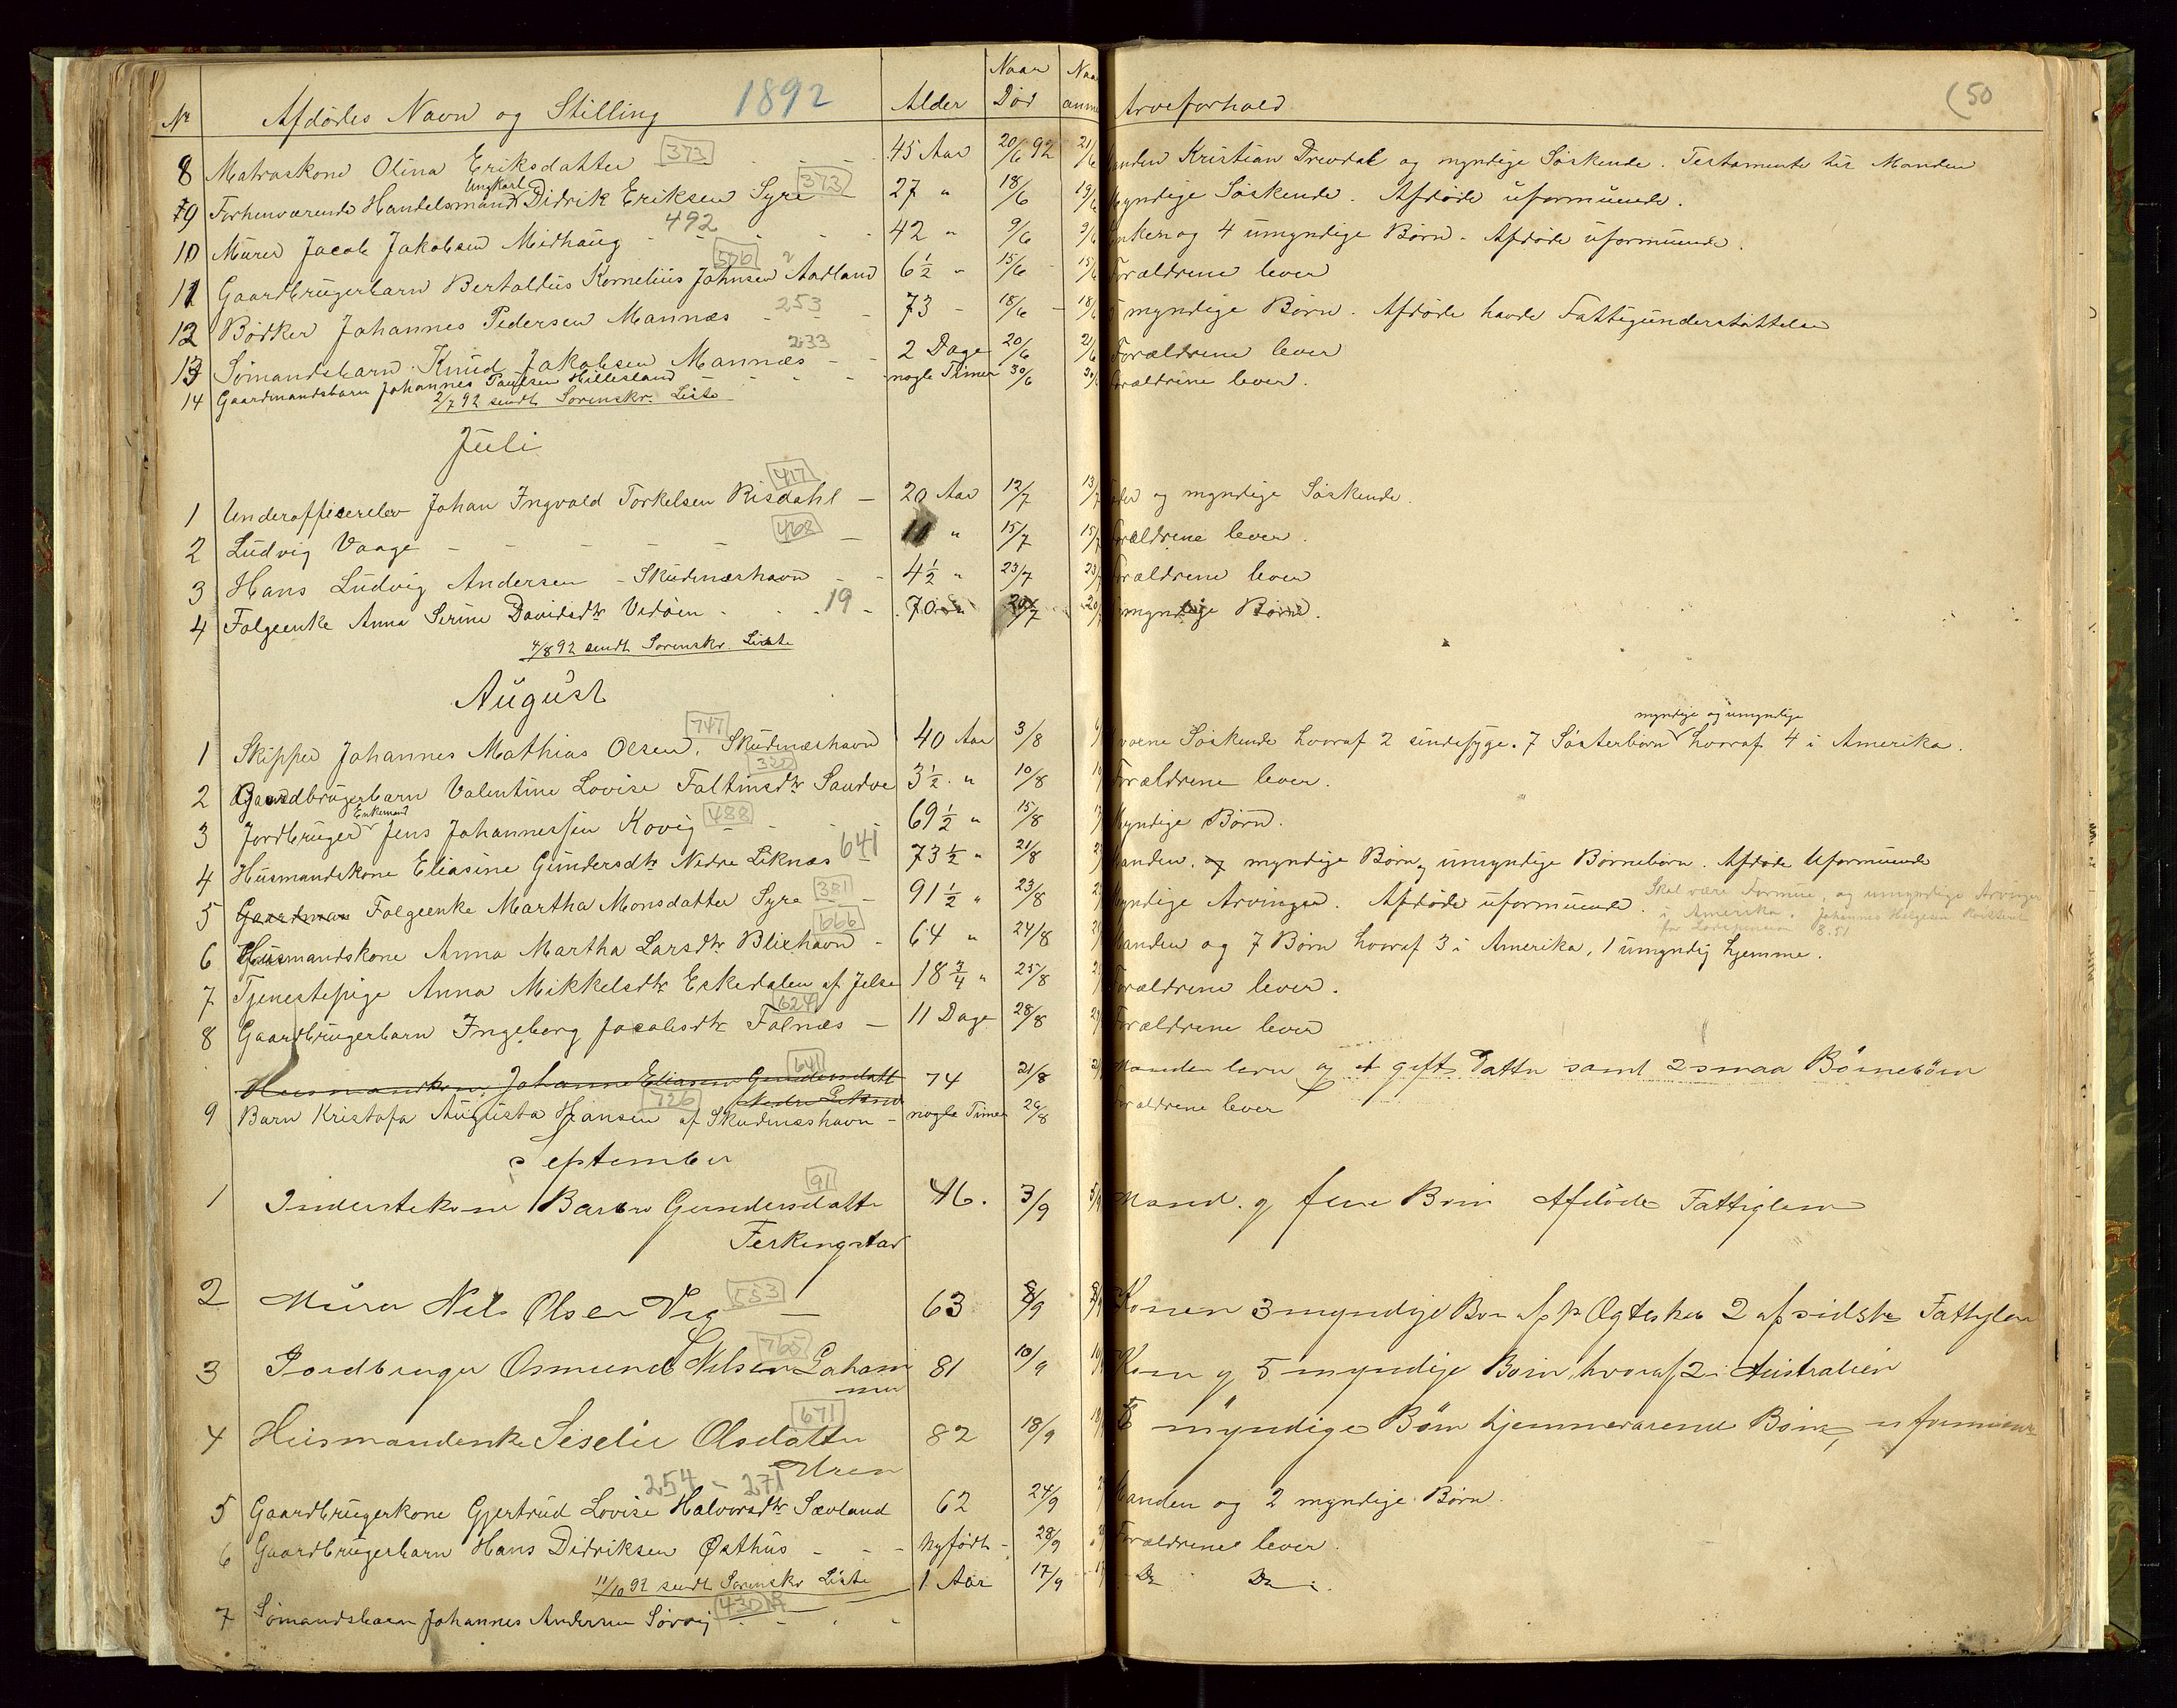 No Afdødes Navn og Stilling 1892 Alder Naar Død Arveforhold (50
8 Matroskone Olina Eriksdatter 373 45 Aar 20/6 92 21/6 Manden Kristian Drevdal og myndige Søskende. Testamente til Manden
Ungkarl
9 Forhenværende Handelsmand Didrik Eriksen Syre 373 27 " 18/6 19/6 Myndige Søskende. Afdøde uformuende.
10 Murer Jacob Jakobsen Midhaug 492 42 " 9/6 9/6 Enken og 4 umyndige Børn. Afdøde uformuende.
11 Gaardbrugerbarn Bertaldius Kornelius Johnsen Aadland 576 6½ " 15/6 15/6 Forældrene lever
12 Bødker Johannes Pedersen Mannæs 253 73 - 18/6 - 18/6 myndige Børn. Afdøde havde Fattigunderstøttelse
13 Sømandsbarn Knud Jakobsen Mannæs 233 2 Dage 20/6 21/6 Forældrene lever
14 Gaardmandsbarn Johannes Paulsen Hillesland nogle Timer 30/6 30/6 Forældrene lever.
2/7 92 sendt Sorenskr. Liste
Juli
1 Underofficerelev Johan Ingvald Torkelsen Risdahl 417 20 Aar 12/7 13/7 og myndige Søskende.
2 Ludvig Vaage 462 11 " 15/7 15/7 Forældrene lever.
3 Hans Ludvig Andersen - Skudesneshavn 4½ " 23/7 23/7 Forældrene lever
4 Folgeenke Anna Serine Davidsdtr Vedøen 19 70 20/7 20/7 myndige Børn.
4/8 92 sendt Sorenskr. Liste
August
myndige og umyndige
1 Skipper Johannes Mathias Olsen, Skudesneshavn 747 40 Aar 3/8 Voxne Søskende hvoraf 2 sindssyge. 7 Søsterbørn hvoraf 4 i Amerika.
2 Gaardbrugerbarn Valentine Lovise Faltinsdtr Sandve 3½ " 10/8 Forældrene lever.
Enkemand
3 Jordbruger Jens Johannessen Kovig 488 69½ " 15/8 Myndige Børn.
4 Husmandskone Eliasine Gundersdtr Nedre Liknæs 641 73½ " 21/8 Manden. og myndige Børn, umyndige Børnebørn. Afdøde Uformuende
5 Gaardman Folgeenke Martha Monsdatter Syre 381 91½ " 23/8 Myndige Arvinger. Afdøde uformuende. Skal være Formue, og umyndige Arvinger
i Amerika. Johannes Helgesen
6 Husmandskone Anna Martha Larsdtr Blixhavn 666 64 " 24/8 Manden og 7 Børn hvoraf 3 i Amerika, 1 umyndig hjemme.
7 Tjenestepige Anna Mikkelsdtr Eskedalen af Jelse 18¾ " 25/8 Forældrene lever.
8 Gaardbrugerbarn Ingeborg Jacobsdtr Falnæs 624 11 Dage 28/8 Forældrene lever
Husmandkone Johanne Eliasen Gundersdatt 641 74 21/8 Manden lever og et gift Datter samt 2 smaa Børnebörn
Nedre Liknæs
9 Barn Kristofa Augusta Hansen af Skudesneshavn 726 nogle Timer 26/8 Forældrene lever
September
1 Inderstekone Barbro Gundersdatter 91 46. 3/9 5/9 Mand og fire Børn Afdöde Fattiglem
Ferkingstad
2 Murer Nils Olsen Vig 553 63 8/9 Konen 3 myndige Børn af 1ste Ægteskab 2 af sidste Fattiglem
3 Jordbruger Osmund Nilsen Laham 765 81 10/9 Kone og 5 myndige Börn, hvoraf 2 i Australien
mer
4 Husmandenke Siselie Olsdatter 671 82 18/9 myndige Börn hjemmeværende Börn, uformuende
Uren
5 Gaardbrugerkone Gjertrud Lovise Halvorsdtr Sævland 254 - 271 62 24/9 Manden og 2 myndige Børn.
6 Gaardbrugerbarn Hans Didriksen Østhus nyfødt 28/9 Forældrene lever.
11/10 92 sendt Sorenskr Liste
7 Sømandsbarn Johannes Andersen Sørvig 430 1 Aar 17/9 Do Do